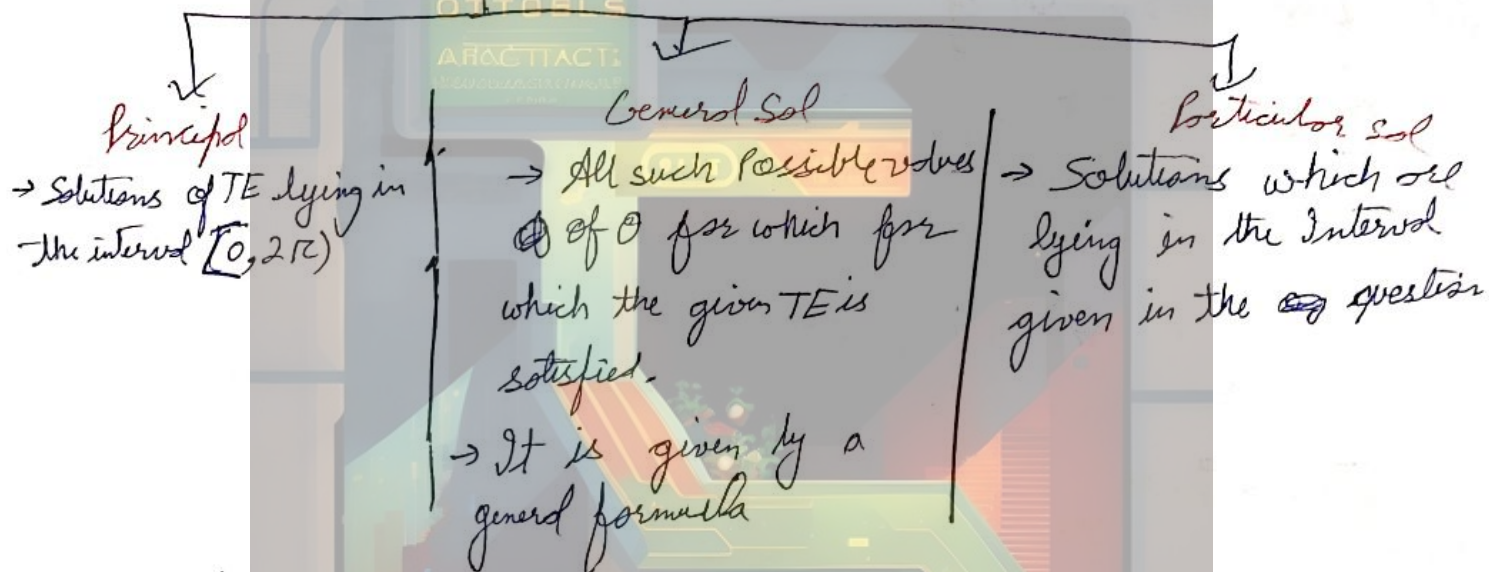 OTTOBLS
ARACTTACT:
Principal
→ Solutions of TE lying in
the interval [0, 2π)
General Sol
→ All such Possible values
of θ for which for
which the given TE is
satisfied.
→ It is given by a
general formula
Particular sol
→ Solutions which are
lying in the Interval
given in the question